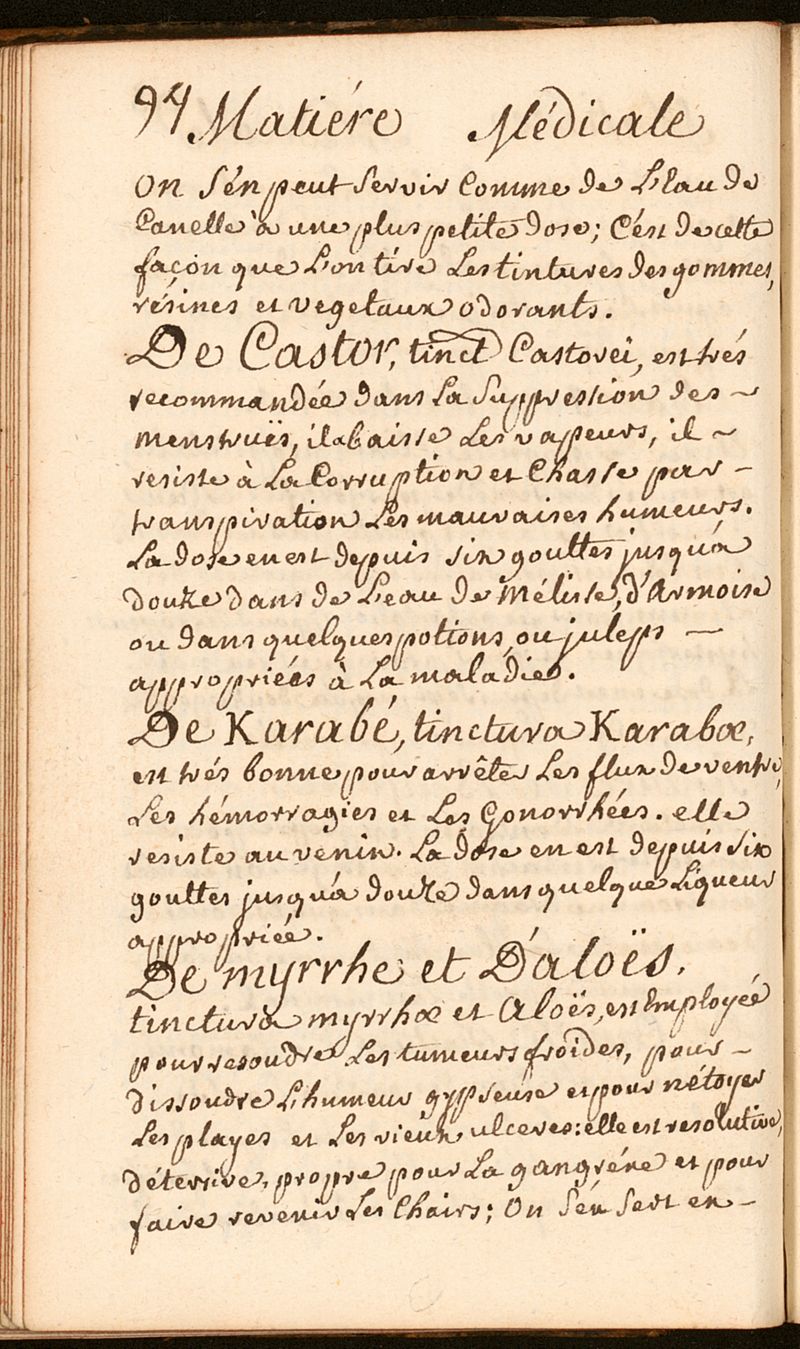 94 Matiére Médicale
On s'én peut servir comme de L'Eau de
Canelle à une plus petite dose; C'est de cette
façon que L'on tire Les tintures des gommes,
résines et vegetaux odorants.
De Castor, tinct Castorei, est trés
recommandée dans La Suppression des ~
menstruës, il abaisse Les vapeurs, il ~
resiste à La Corruption et Chasse par -
transpiration Les mauvaises humeurs.
La dose en est depuis six gouttes jusqu'á
douze dans de L'eau de Mélisse, d'Armoise
ou dans quelques potions, ou juleps —
appropriées à La maladie.
De Karabé, tinctura Karabœ,
est trés bonne pour arrêter Les flux de ventre,
Les hémorragies et Les Gonorrhées. elle
resiste au venin. La dose en est depuis six
gouttes jusqu'á douze dans quelque Liqueur
appropriée.
De myrrhe et D'aloës.
tinctura myrrhœ et Aloës, est Employée
pour resoudre Les tumeurs froides, pour -
dissoudre L'humeur gypseuse et pour nétoyer
Les playes et Les vieux ulceres: elle est resolutive,
détersive, propre pour La gangréne et pour
faire revenir Les Chairs; On s'én sert en -